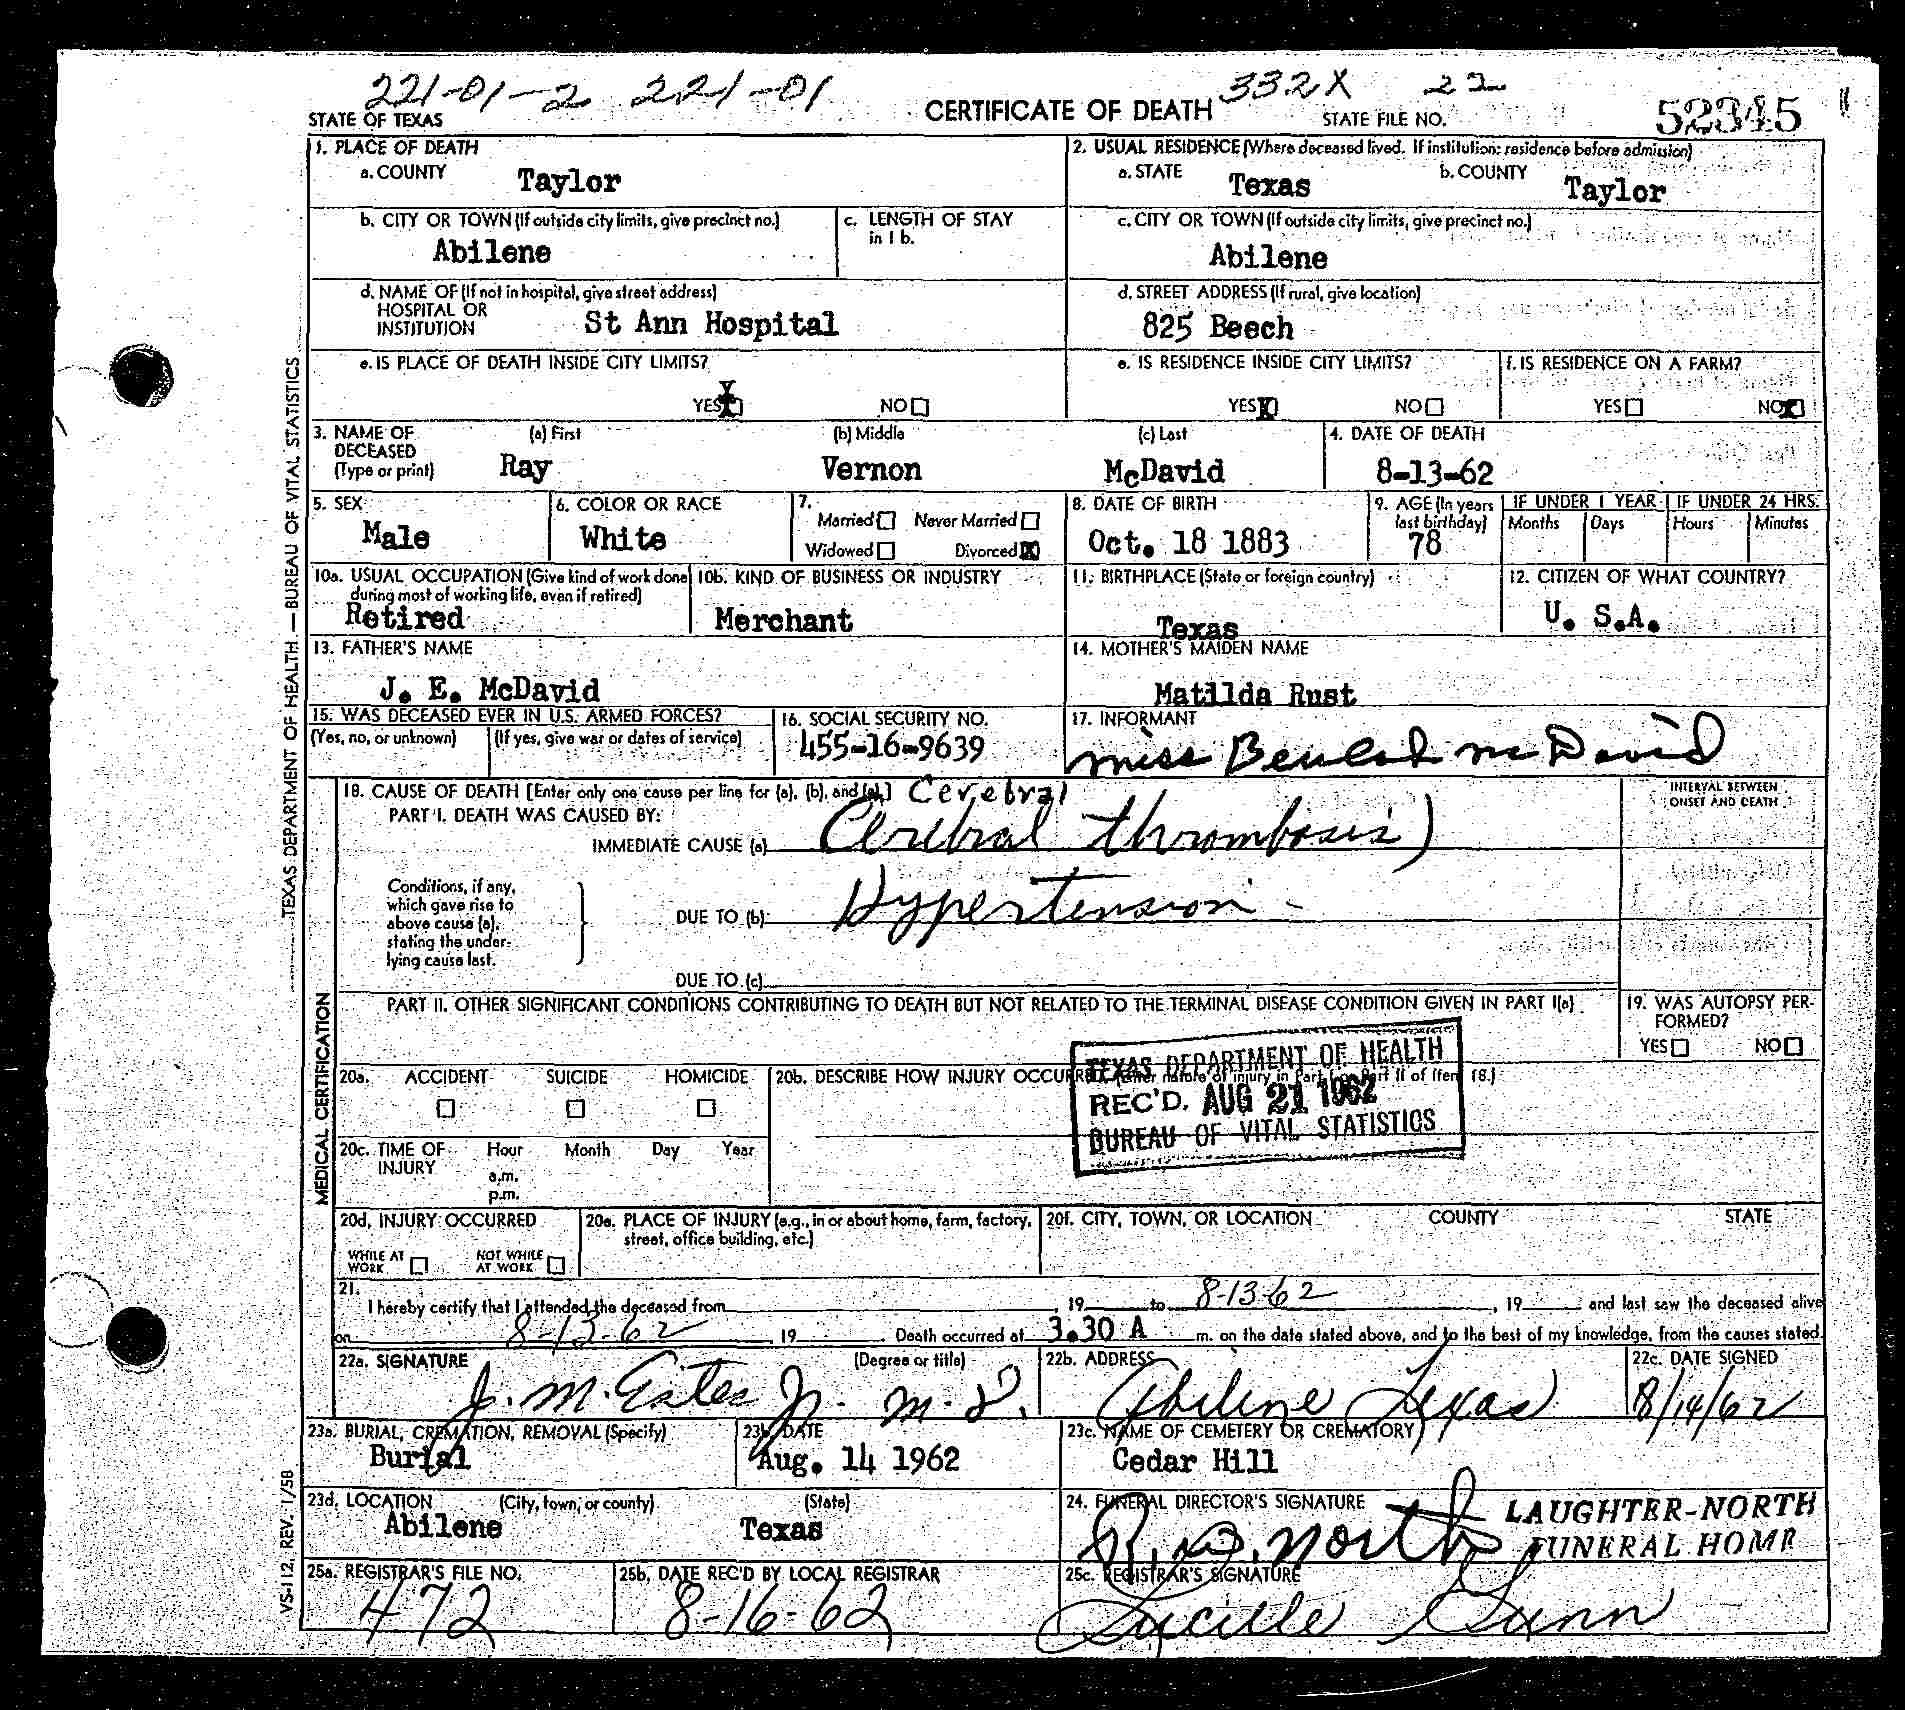 221-01-2 221-01 332X 22
STATE OF TEXAS CERTIFICATE OF DEATH STATE FILE NO. 52345
1. PLACE OF DEATH
a. COUNTY Taylor
2. USUAL RESIDENCE (Where deceased lived. If institution: residence before admission)
a. STATE Texas b. COUNTY Taylor
b. CITY OR TOWN (If outside city limits, give precinct no.)
Abilene
c. LENGTH OF STAY
in 1 b.
c. CITY OR TOWN (If outside city limits, give precinct no.)
Abilene
d. NAME OF (If not in hospital, give street address)
HOSPITAL OR
INSTITUTION St Ann Hospital
d. STREET ADDRESS (If rural, give location)
825 Beech
e. IS PLACE OF DEATH INSIDE CITY LIMITS?
YES X NO
e. IS RESIDENCE INSIDE CITY LIMITS?
YES X NO
f. IS RESIDENCE ON A FARM?
YES NO X
3. NAME OF
DECEASED
(Type or print)
(a) First (b) Middle (c) Last
Ray Vernon McDavid
4. DATE OF DEATH
8-13-62
5. SEX
Male
6. COLOR OR RACE
White
7.
Married Never Married
Widowed Divorced X
8. DATE OF BIRTH
Oct. 18 1883
9. AGE (In years
last birthday)
78
IF UNDER 1 YEAR IF UNDER 24 HRS.
Months Days Hours Minutes
10a. USUAL OCCUPATION (Give kind of work done
during most of working life, even if retired)
Retired
10b. KIND OF BUSINESS OR INDUSTRY
Merchant
11. BIRTHPLACE (State or foreign country)
Texas
12. CITIZEN OF WHAT COUNTRY?
U. S.A.
13. FATHER'S NAME
J. E. McDavid
14. MOTHER'S MAIDEN NAME
Matilda Rust
15. WAS DECEASED EVER IN U.S. ARMED FORCES?
(Yes, no, or unknown) (If yes, give war or dates of service)
16. SOCIAL SECURITY NO.
455-16-9639
17. INFORMANT
Miss Beulah McDavid
18. CAUSE OF DEATH [Enter only one cause per line for (a), (b), and (c).] Cerebral
PART I. DEATH WAS CAUSED BY:
IMMEDIATE CAUSE (a) Cerebral thrombosis)
INTERVAL BETWEEN
ONSET AND DEATH
Conditions, if any,
which gave rise to
above cause (a),
stating the under-
lying cause last.
DUE TO (b) Hypertension -
DUE TO (c)
PART II. OTHER SIGNIFICANT CONDITIONS CONTRIBUTING TO DEATH BUT NOT RELATED TO THE TERMINAL DISEASE CONDITION GIVEN IN PART I(a)
19. WAS AUTOPSY PER-
FORMED?
YES NO
20a. ACCIDENT SUICIDE HOMICIDE
20b. DESCRIBE HOW INJURY OCCURRED. (Enter nature of injury in Part I or Part II of Item 18.)
TEXAS DEPARTMENT OF HEALTH
REC'D. AUG 21 1962
BUREAU OF VITAL STATISTICS
20c. TIME OF
INJURY
Hour Month Day Year
a.m.
p.m.
20d. INJURY OCCURRED
WHILE AT
WORK
NOT WHILE
AT WORK
20e. PLACE OF INJURY (e.g., in or about home, farm, factory,
street, office building, etc.)
20f. CITY, TOWN, OR LOCATION COUNTY STATE
21.
I hereby certify that I attended the deceased from , 19 to 8-13-62 , 19 and last saw the deceased alive
on 8-13-62 , 19 . Death occurred at 3.30 A m. on the date stated above, and to the best of my knowledge, from the causes stated.
22a. SIGNATURE (Degree or title)
J. M. Estes Jr. M.D.
22b. ADDRESS
Abilene Texas
22c. DATE SIGNED
8/14/62
23a. BURIAL, CREMATION, REMOVAL (Specify)
Burial
23b. DATE
Aug. 14 1962
23c. NAME OF CEMETERY OR CREMATORY
Cedar Hill
23d. LOCATION (City, town, or county) (State)
Abilene Texas
24. FUNERAL DIRECTOR'S SIGNATURE
R. D. North LAUGHTER-NORTH
FUNERAL HOME
25a. REGISTRAR'S FILE NO.
472
25b. DATE REC'D BY LOCAL REGISTRAR
8-16-62
25c. REGISTRAR'S SIGNATURE
Lucille Gunn
TEXAS DEPARTMENT OF HEALTH — BUREAU OF VITAL STATISTICS
MEDICAL CERTIFICATION
VS-112, REV. 1/58